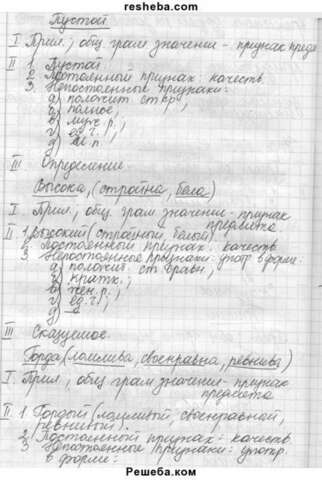 resheba.com
Пустой
I Прил., общ. грам значение - признак пред
II 1 Пустой.
2 Постоянный признак: качеств.
3 Непостоянные признаки:
а) положит ст ср,
б) полное,
в) муж р.,
г) ед. г.,
д) п.
III Определение
Высока, (стройна, бела)
I. Прил., общ. грам значение - признак
предмета
II. 1 Высокий (стройный, белой).
2 Постоянный признак: качеств
3 Непостоянные признаки: употр в форме:
а) положит. ст сравн,
б) кратк.,
в) жен. р.,
г) ед. г.,
д) –
III Сказуемое.
Горда (ломлива, своенравна, ревнива)
I. Прил., общ грам значение - признак
предмета
II. 1 Гордой (ломливый, своенравной,
ревнивый).
2 Постоянный признак: качеств
3 Непостоянные признаки: употр.
в форме:
Решеба.ком